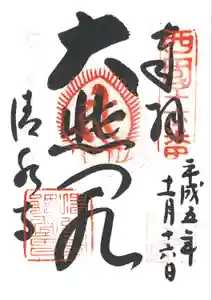 奉拝
平成五年
十一月十六日
大悲閣
清水寺